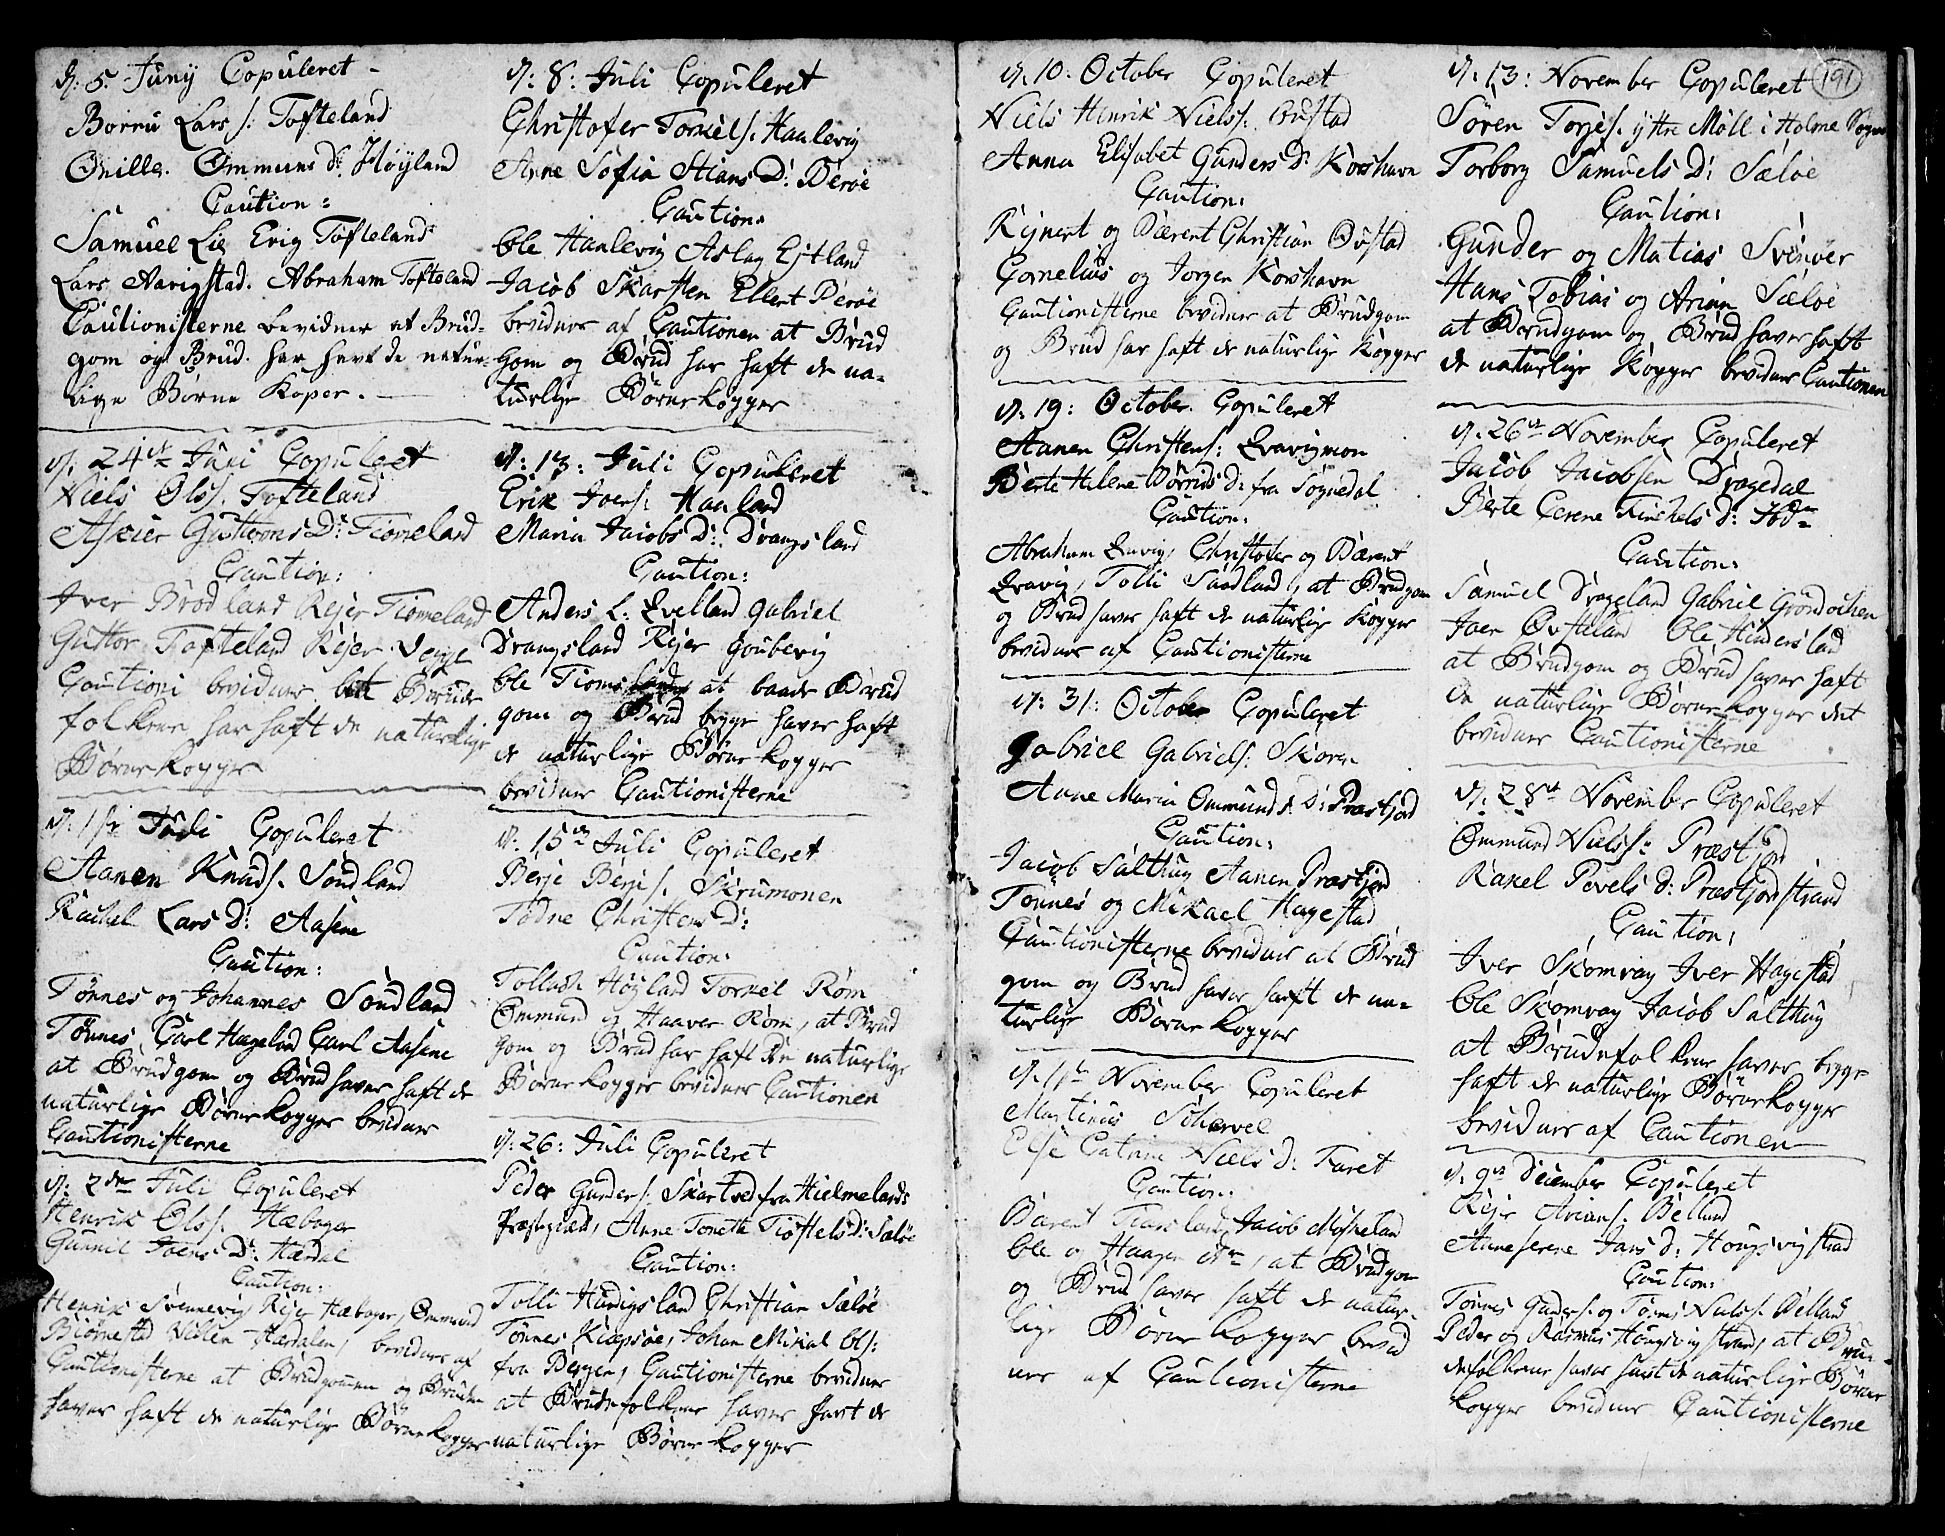 d. 5. Junÿ Copuleret
Børru Lars s: Tofteland
Onille. Ommuns dr Høyland
Caution:
Samuel Lie Erig Tofteland
Lars Aarigstad. Abraham Tofteland
Cautionisterne bevidner at Brud-
gom og Brud. har havt de natur-
lige Børne Koper.
d. 24de Juni Copuleret
Niels Ols s. Tofteland
Guttorms D: Tiomeland
Caution:
Iver Brodland Rejer Tiomeland
Guttor Tofteland Rejer
Cautioni bevidner Brude
folkene har haft de naturlige
Børnekopper
d. 1ste Juli Copuleret
Aanen Knuds. Sondland
Rachel Lars D: Aasene
Caution:
Tønnes og Johannes Sondland
Tønnes, Carl Hageland Carl Aasene
at Brudgom og Brud haver haft de
naturlige Børnekopper bevidner
Cautionisterne
d. 2den Juli Copuleret
Henrik Ols s. Hæbager
Gunnil Joens D: Hædal
Caution:
Henrik Svennevig Rejer Hæbager, Ommund
Biørnestad Villen Hædalen, bevidner af
Cautionisterne at Brudgommen og Bruden
haver haft de naturlige Børnekopper
d: 8: Juli Copuleret
Christofer Torkels. Haalevig
Anne Sofia Stians D: Berøe
Caution:
Ole Haalevig Aslag Ejtland
Jacob Skarsten Ellert Berøe
bevidner af Cautionen at Brud
gom og Brud har haft de na-
turlige Børnekopper
d: 13: Juli Copuleret
Erik Joens: Haaland
Maria Jacobs D: Drangsland
Caution:
Anders L: Qvelland Gabriel
Drangsland Rejer Goubevig
Ole Tiomsland at baade Brud
gom og Brud begge haver haft
de naturlige Børnekopper
bevidner Cautionisterne
d. 15de Juli Copuleret
Berje Berjes. Skrumonen
Todne Christens D:
Caution:
Tollach Høyland Torkel Røm
Ommund og Haaver Røm, at Brud
gom og Brud har haft de naturlige
Børnekopper bevidner Cautionen
d: 26: Juli Copuleret
Peder Gunders. Skartved fra Hielmelands
Præstegield, Anne Tonette Tiøstels D: Seløe
Caution:
Tolli Hundigsland Christian Sæløe
Tønnes Kiæpsøe, Johan Mikal Ols:
fra Bergen, Cautionisterne bevidner
at Brudefolkene haver havt de
naturlige Børnekopper
d. 10: October Copuleret
Niels Henrik Niels s. Oustad
Anna Elisabet Gunders D: Korshavn
Caution:
Rejnert og Bærent Christian Oustad
Cornelius og Jorgen Korshavn
Cautionisterne bevidner at Brudgom
og Brud har haft de naturlige Kopper
d. 19: October. Copuleret
Aanen Christens: Qvavigmon
Berte Helene Børrids D: fra Sognedal
Caution:
Abraham Qvavig, Christofer og Bærent
Qvavig, Tolli Sandland, at Brudgom
og Brud haver haft de naturlige Kopper
bevidner af Cautionisterne
d: 31: October Copuleret
Gabriel Gabriels: Skoven
Anne Maria Ommunds D: Præstfjord
Caution:
Jacob Salthug Aanen Præstfjord
Tønnes og Mikael Hagestad
Cautionisterne bevidner at Brud
gom og Brud haver haft de na-
turlige Børnekopper
d. 11te November Copuleret
Martinus
Else Catrine Niels D: Faret
Caution:
Bærent Jacob Moseland
Ole og Haagen at Brudgom
og Brud haver haft de natur
lige Børnekopper bevid
ner af Cautionisterne
d. 13: November Copuleret
191
Søren Torjes. ÿttre Møll i Holme Sogn
Torborg Samuels D: Sæløe
Caution:
Gunder og Matias Svinøer
Hans Tobias og Arian Sæløe
at Brudgom og Brud haver haft
de naturlige Kopper bevidner Cautionen
d. 26de November Copuleret
Jacob Jacobsen Dragedal
Berte Cerene Tinckels D:
Caution:
Samuel Drageland Gabriel Grøndokken
Joen Ovsteland Ole Hinderslad
at Brudgom og Brud haver haft
de naturlige Børnekopper det
bevidner Cautionisterne
d: 28de November Copuleret
Ommund Niels s: Præstfjord
Rakel Povels D: Præstfjordstrand
Caution:
Iver Skomrag Iver Hagestad
Ole Skomrag Jacob Salthug
at Brudefolkene haver begge
haft de naturlige Børnekopper
bevidner af Cautionen
d. 9de December Copuleret
Rejer Arians. Belland
Anneserene Jans D: Hougsvigstrad
Caution:
Tønnes Gunders. og Tønnes Niels s. Belland
Peder og Rasmus Hougsvigstrand, at Bru-
defolkene haver havt de naturlige Børne
kopper bevidner Cautionisterne